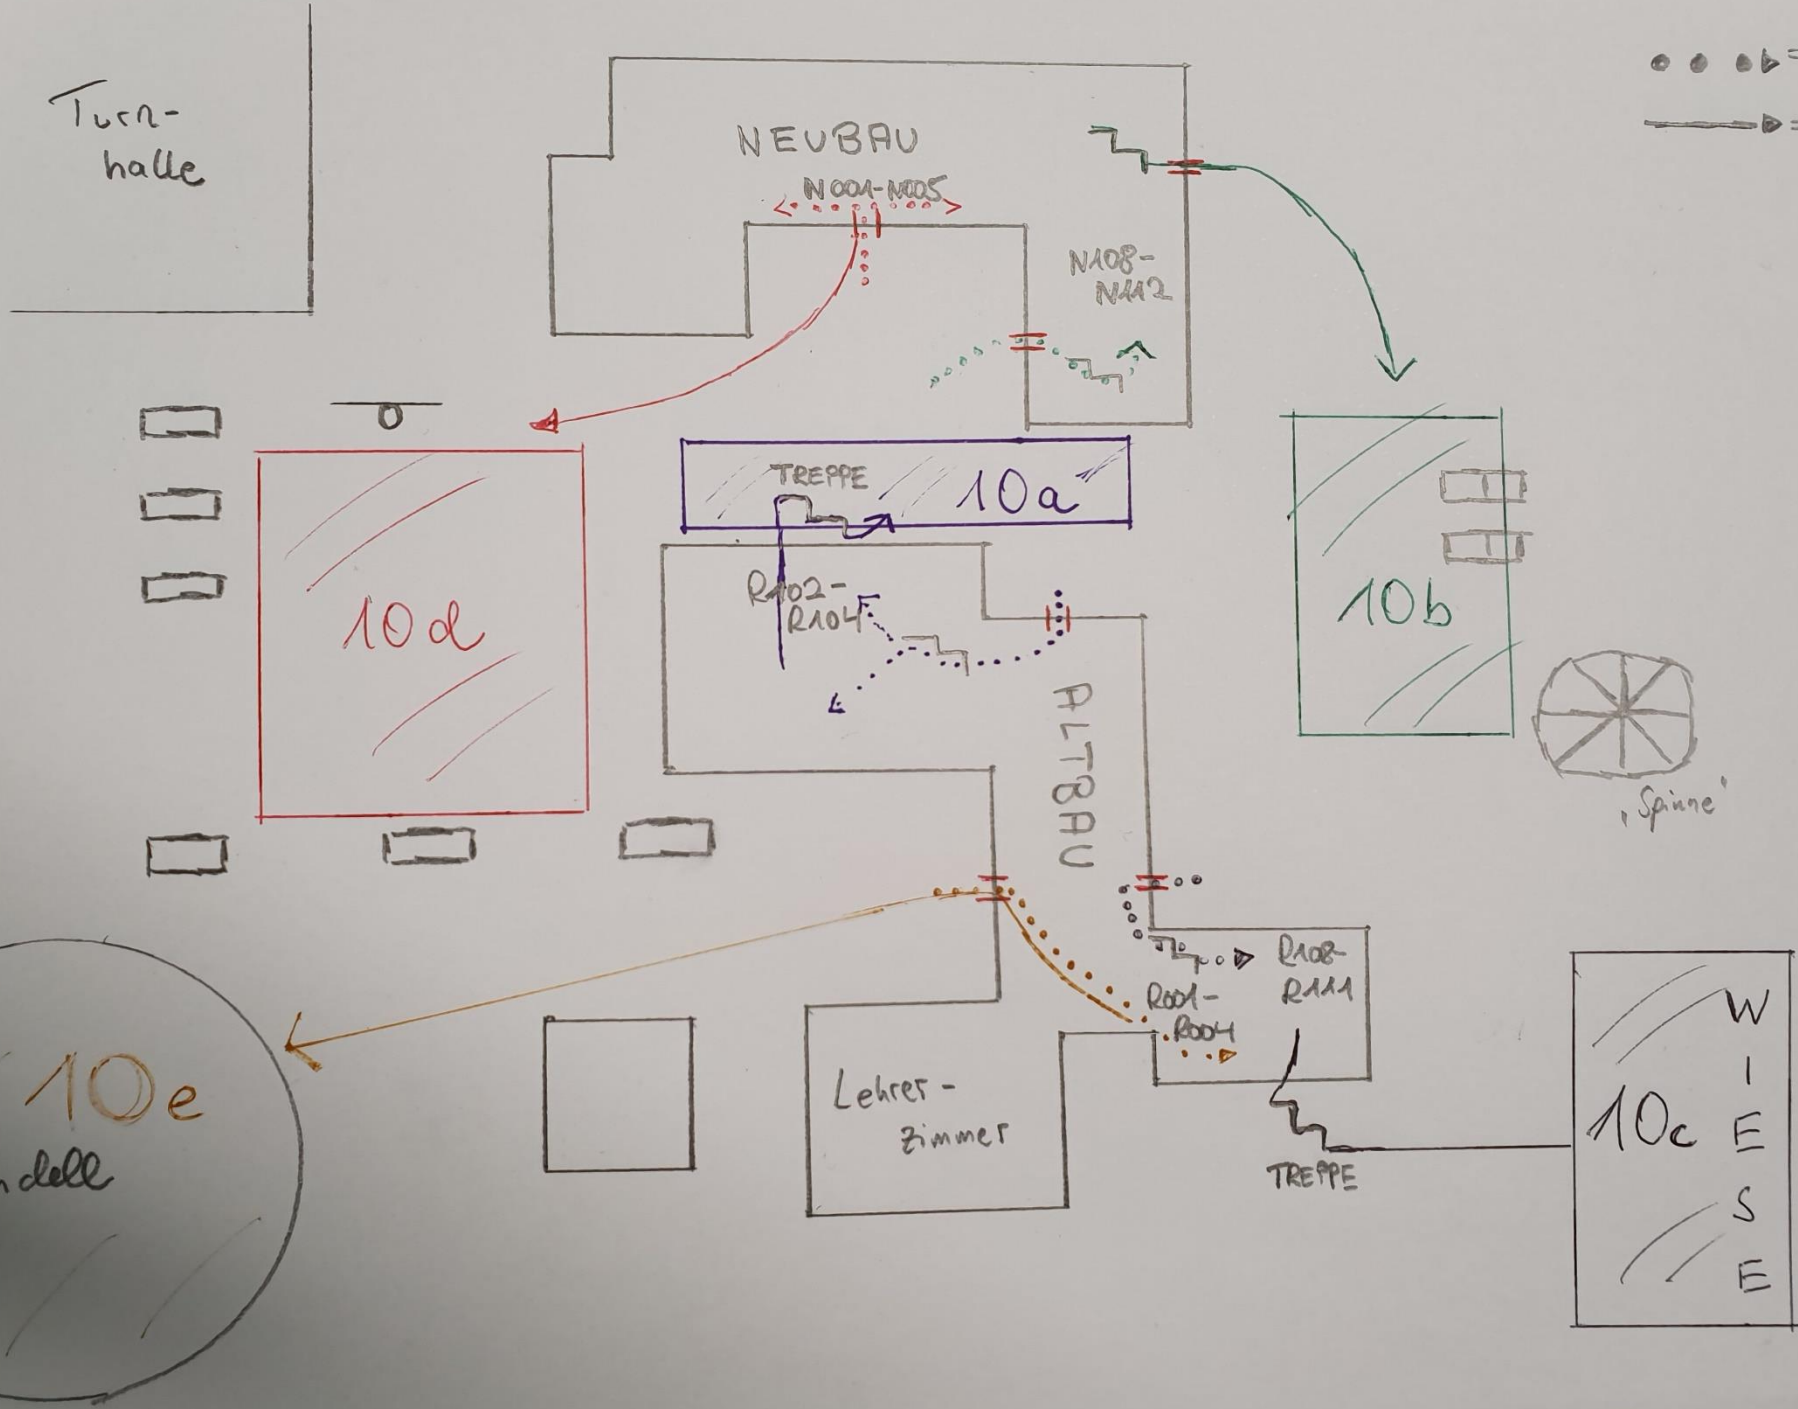 Turn-
halle
NEUBAU
N001-N005
N108-
N112
TREPPE
10a
R102-
R104
10d
10b
ALTBAU
„Spinne"
R108-
R111
R001-
R004
Lehrer-
zimmer
TREPPE
10c
WIESE
10e
ndell
=
=